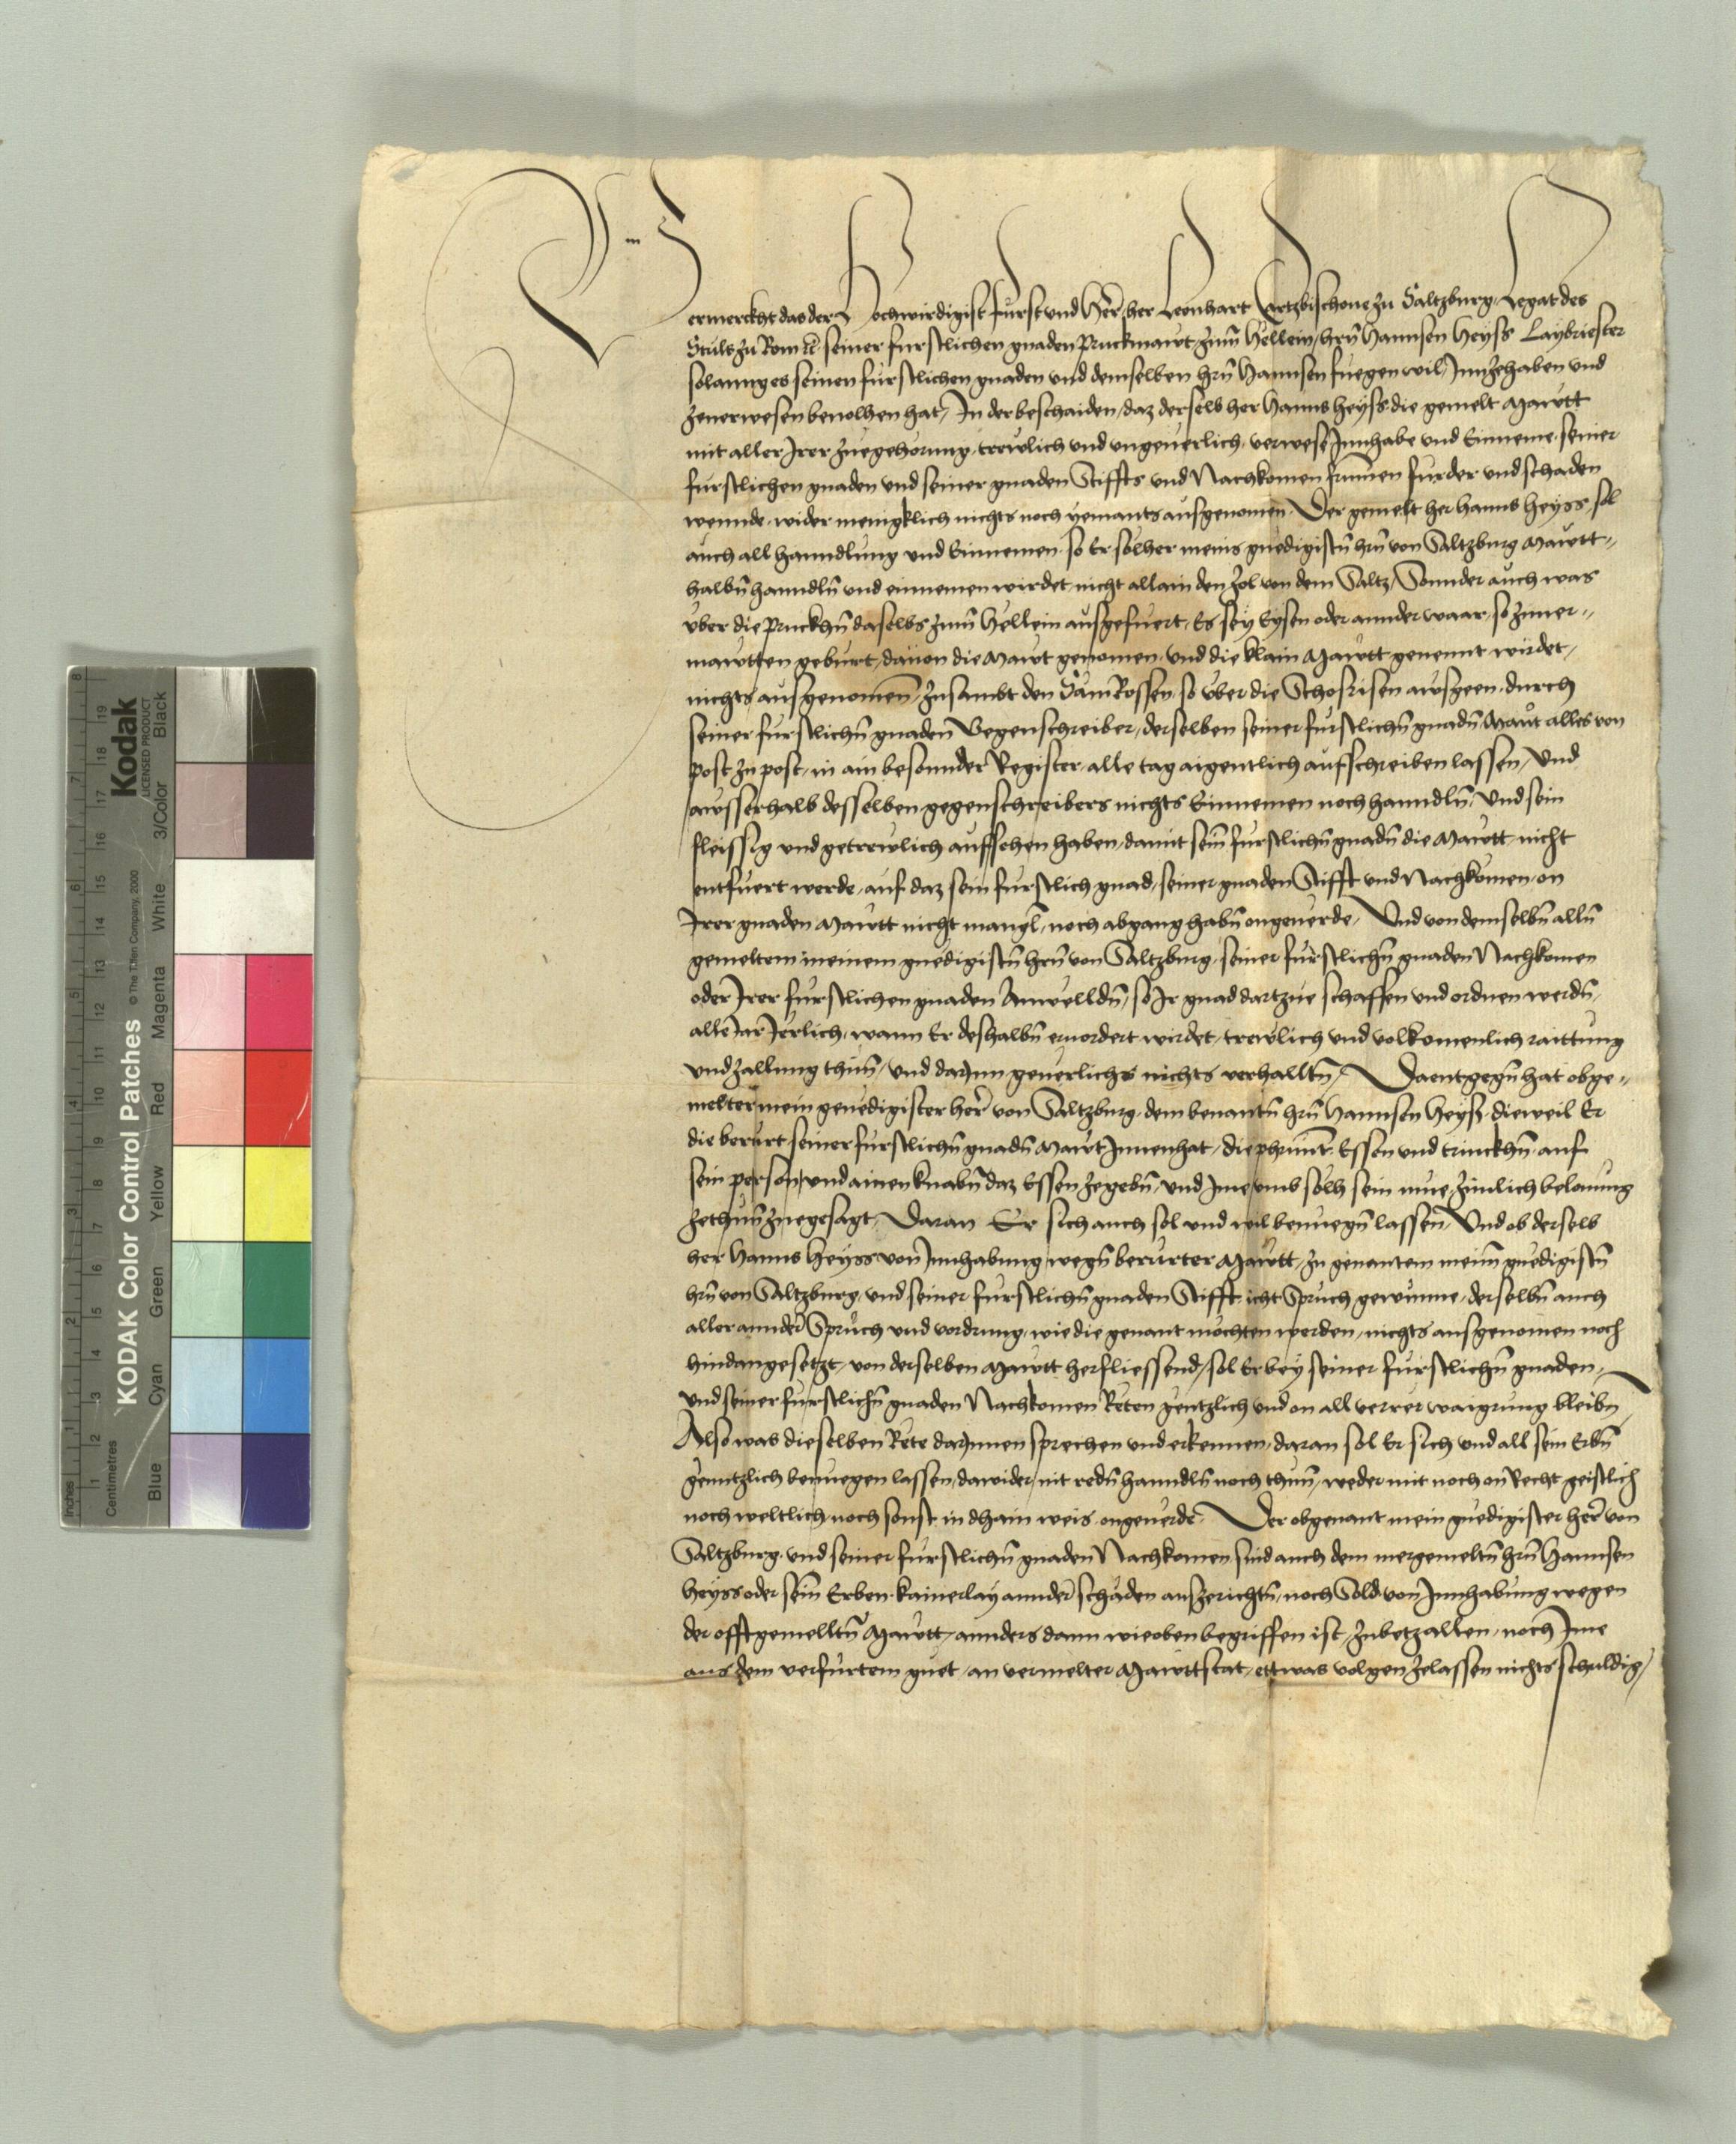 Vermerckht das der Hochwirdigist Furst und Her̃, her Leonhart Ertzbischoue zu Saltzburg, Legat des
Stuls zu Rom ꝛc. seiner furstlichen gnaden Pruckmawt, zum̃ Hellein, hrñ Hannsen Heyss Laybriester
solannges seinen furstlichen gnaden und demselben hrñ Hannsen fuegen wil, Innzehaben und
zeuerwesen beuolhen hat, In der beschaiden, daz derselb her Hanns Heyss die gemelt Mawtt
mit aller Irer zuegehorung, trewlich und ungeuerlich, verwese Innhabe und Einneme, seiner
furstlichen gnaden und seiner gnaden Stiffts und Nachkomen frumen furder und schaden
wennde, wider menigklich nichts noch yemants ausgenomen. Der gemelt her Hanns Heyss, sol
auch all hanndlung und Einnemen, so Er solher meins gnedigistñ hrñ von Saltzburg Mawtt-
halbñ hanndlñ und einnemen wirdet, nicht allain den Zol von dem Saltz, Sonnder auch was
uber die Pruckhñ daselbs zum̃ Hellein ausgefuert, Es sey Eysen oder annder waar, so zuuer-
mawtten geburt, dauon die Mawt genomen, und die klain Mawtt genennt wirdet,
nichts ausgenomen, zusambt den Sam Rossen, so uber die Schofrisen awsgeen, durch
seiner furstlichñ gnaden Gegenschreiber, derselben seiner furstlichñ gnadñ Mawt alles von
post zu post, in ain besonnder Register, alle tag aigentlich aufschreiben lassen, Und
awsserhalb desselben gegenschreibers nichts Einnemen noch hanndlñ, Und sein
fleissig und getrewlich aufsehen haben, damit sein̄ furstlichñ gnadñ die Mawtt nicht
entfuert werde, auf daz sein furstlich gnad, seiner gnaden Stifft und Nachkomen, on
Irer gnaden Mawtt nicht mangl, noch abgang habñ ongeuerde, Und von demselbñ allñ
gemeltem meinem gnedigistñ hrñ von Saltzburg, seiner furstlichñ gnaden Nachkomen
oder Irer furstlichen gnaden Anwelldñ, so Ir gnad dartzue schaffen und ordnen werdñ,
alle Jar Jerlich, wann Er deshalbñ eruordert wirdet, trewlich und volkomenlich raittung
und zallung thun, und darynn geuerlichs nichts verhalltñ, Daentgegñ hat obge-
melter mein genedigister her̃ von Saltzburg, dem benantñ hrñ Hannsen Heyss, dieweil Er
die berurt seiner furstlichñ gnadñ Mawt Innenhat, die phrunt, Essen und trinckhñ, auf
sein person, und ainen knabñ daz Essen zegebñ, und Ime umb solh sein mue, zimlich belonung
zethun zuegesagt, Daran Er sich auch sol und wil benuegñ lassen, Und ob derselb
her Hanns Heyss von Innhabung wegñ berurter Mawtt, zu genantem meinm̃ gnedigistñ
hrñ von Saltzburg, und seiner furstlichñ gnaden Stifft, icht Spruch gewunne, derselbñ auch
aller annder Spruch und vordrung, wie die genant mochten werden, nichts ausgenomen noch
hindangesetzt, von derselben Mawtt herfliessend, sol Er bey seiner furstlichñ gnaden,
und seiner furstlichñ gnaden Nachkomen Reten gentzlich und on all verrer waigrung bleibñ
Also was dieselben Rete darynnen sprechen und erkennen, daran sol Er sich und all sein Erbñ
genntzlich benuegen lassen, dawider, nit redñ hanndlñ noch thun, weder mit noch on Recht geistlich
noch weltlich noch sonst in dhain weis, ongeuerde. Der obgenant mein gnedigister her̃ von
Saltzburg, und seiner furstlichñ gnaden Nachkomen sind auch dem mergemeltñ hrñ Hannsen
Heyss oder sein̄ Erben, kainerlay annder schaden aufzerichtñ, noch Sold von Innhabung wegen
der offtgemelltñ Mawtt, annders dann wie oben begriffen ist, zubetzallen, noch Ime
aus dem verfurtem guet, an vermelter Mawttstat, ettwas volgen zelassen nichts schuldig,
KODAK Color Control Patches
© The Tiffen Company, 2000
Kodak
LICENSED PRODUCT
Inches
Centimetres
Blue
Cyan
Green
Yellow
Red
Magenta
White
3/Color
Black